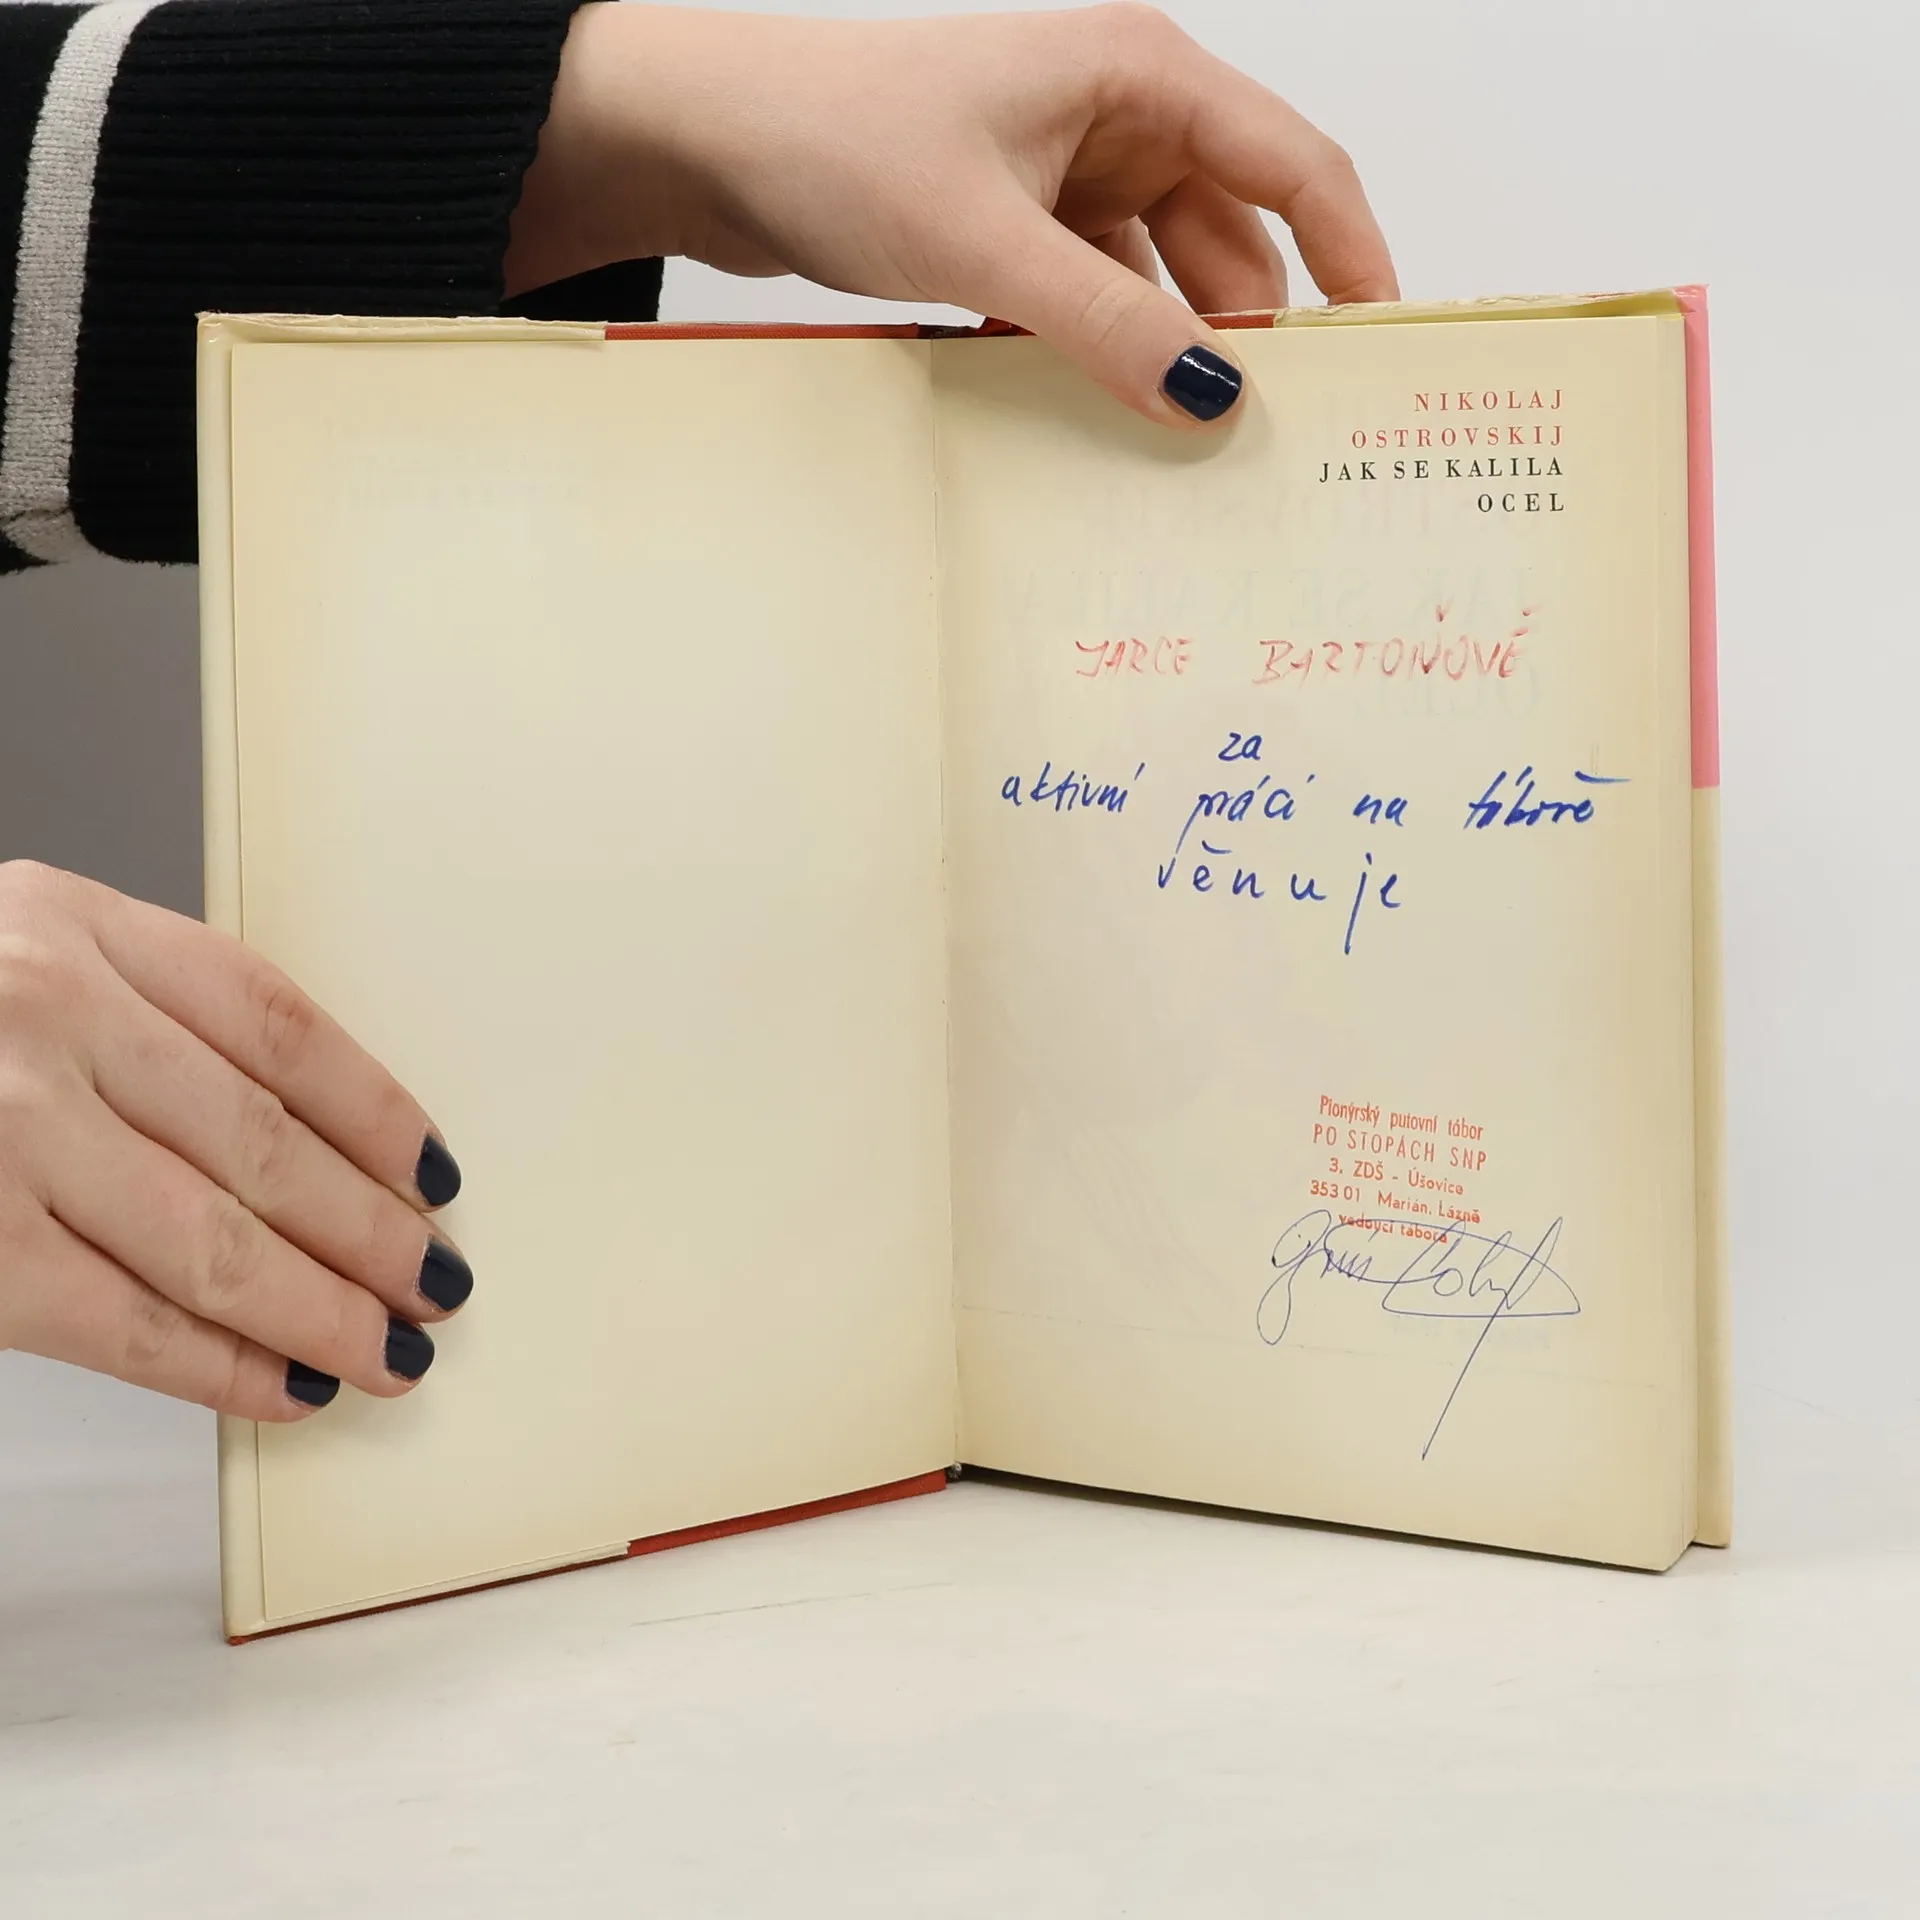 NIKOLAJ
OSTROVSKIJ
JAK SE KALILA
OCEL
JARCE BARTOŇOVÉ
za
aktivní práci na táboře
věnuje
Pionýrský putovní tábor
PO STOPÁCH SNP
3. ZDŠ - Úšovice
353 01 Marián. Lázně
vedoucí tábora